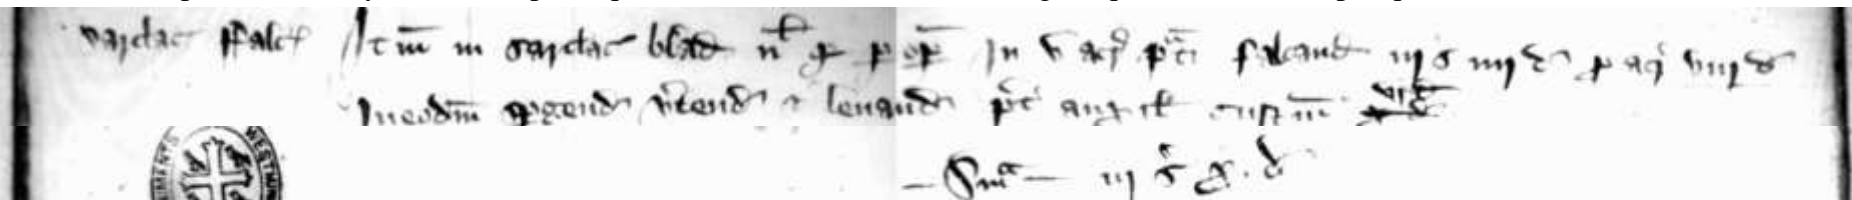 Sarclac' ffalc' Itm in sarclac' blad nl q p op In v acr pti falcand iijs iiijd p acr viijd
In eodm spgend vtend & leuand pt aux il custm vjd
Sma iijs xd